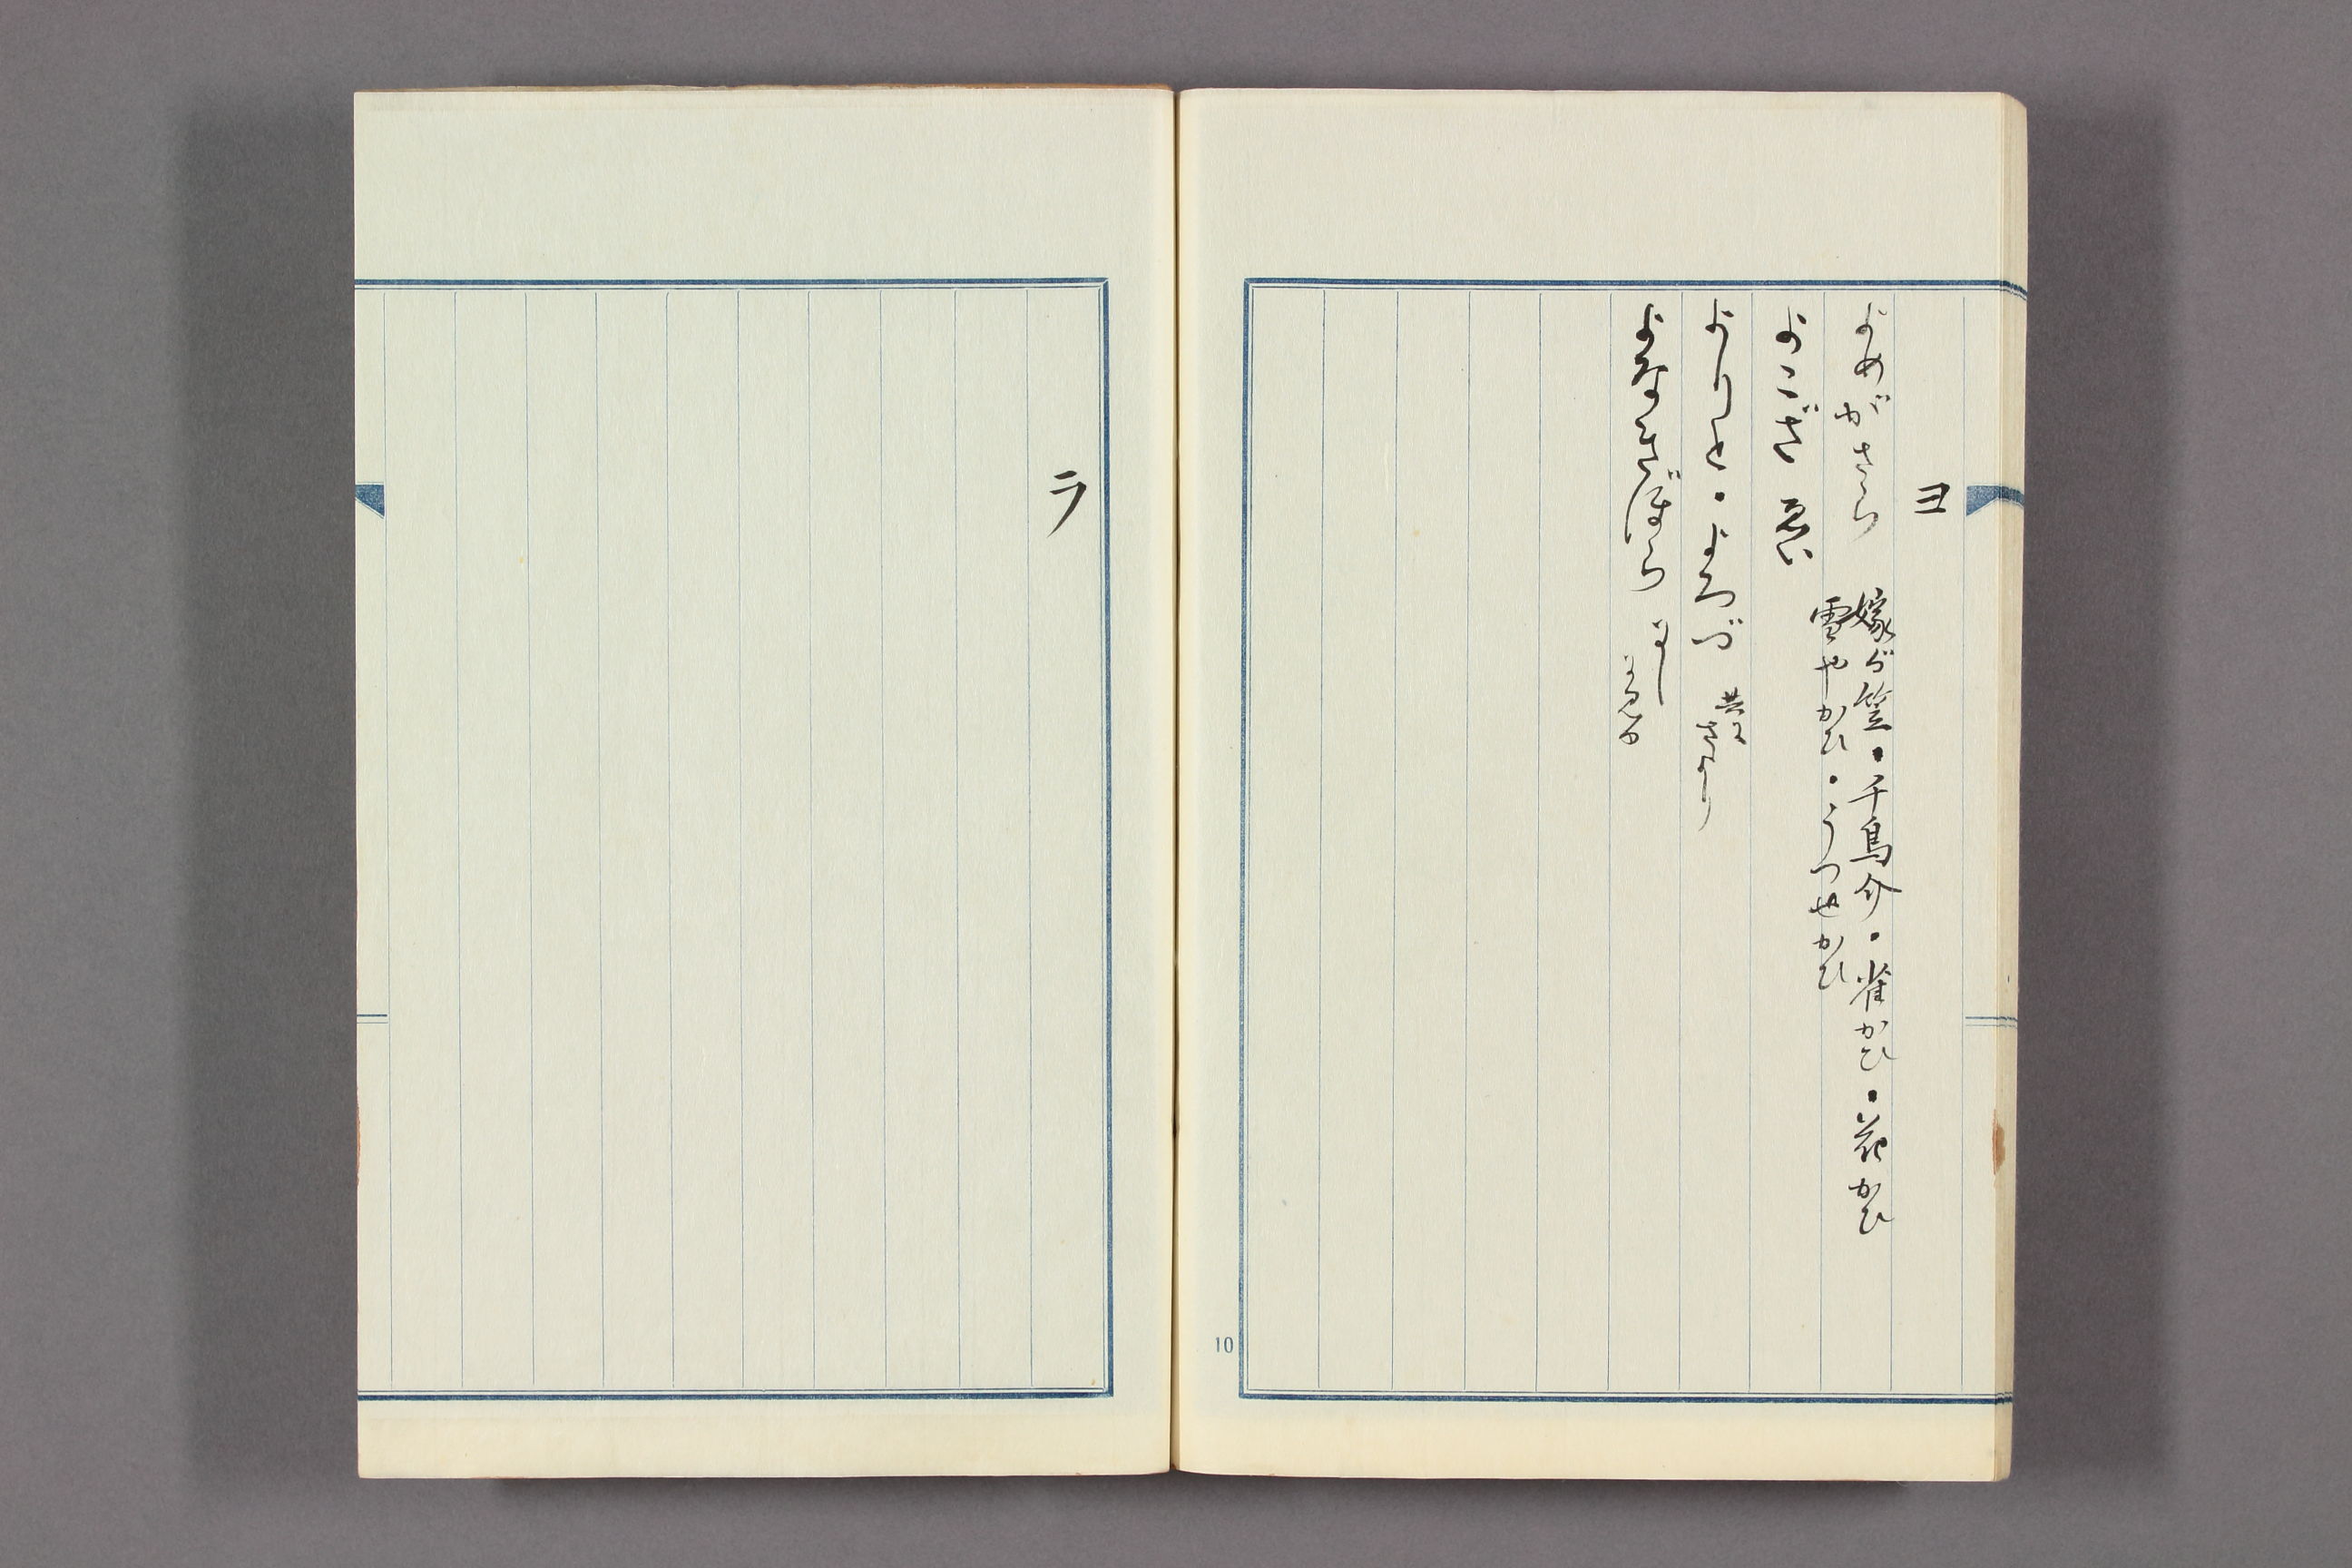 ヨ
よめがさら
嫁が笠・千鳥介・雀かひ・花かひ
雪やかひ・うつせかひ
よこざ ゑい
よりと・よろづ
共に
さより
よなきぼら
10
ラ